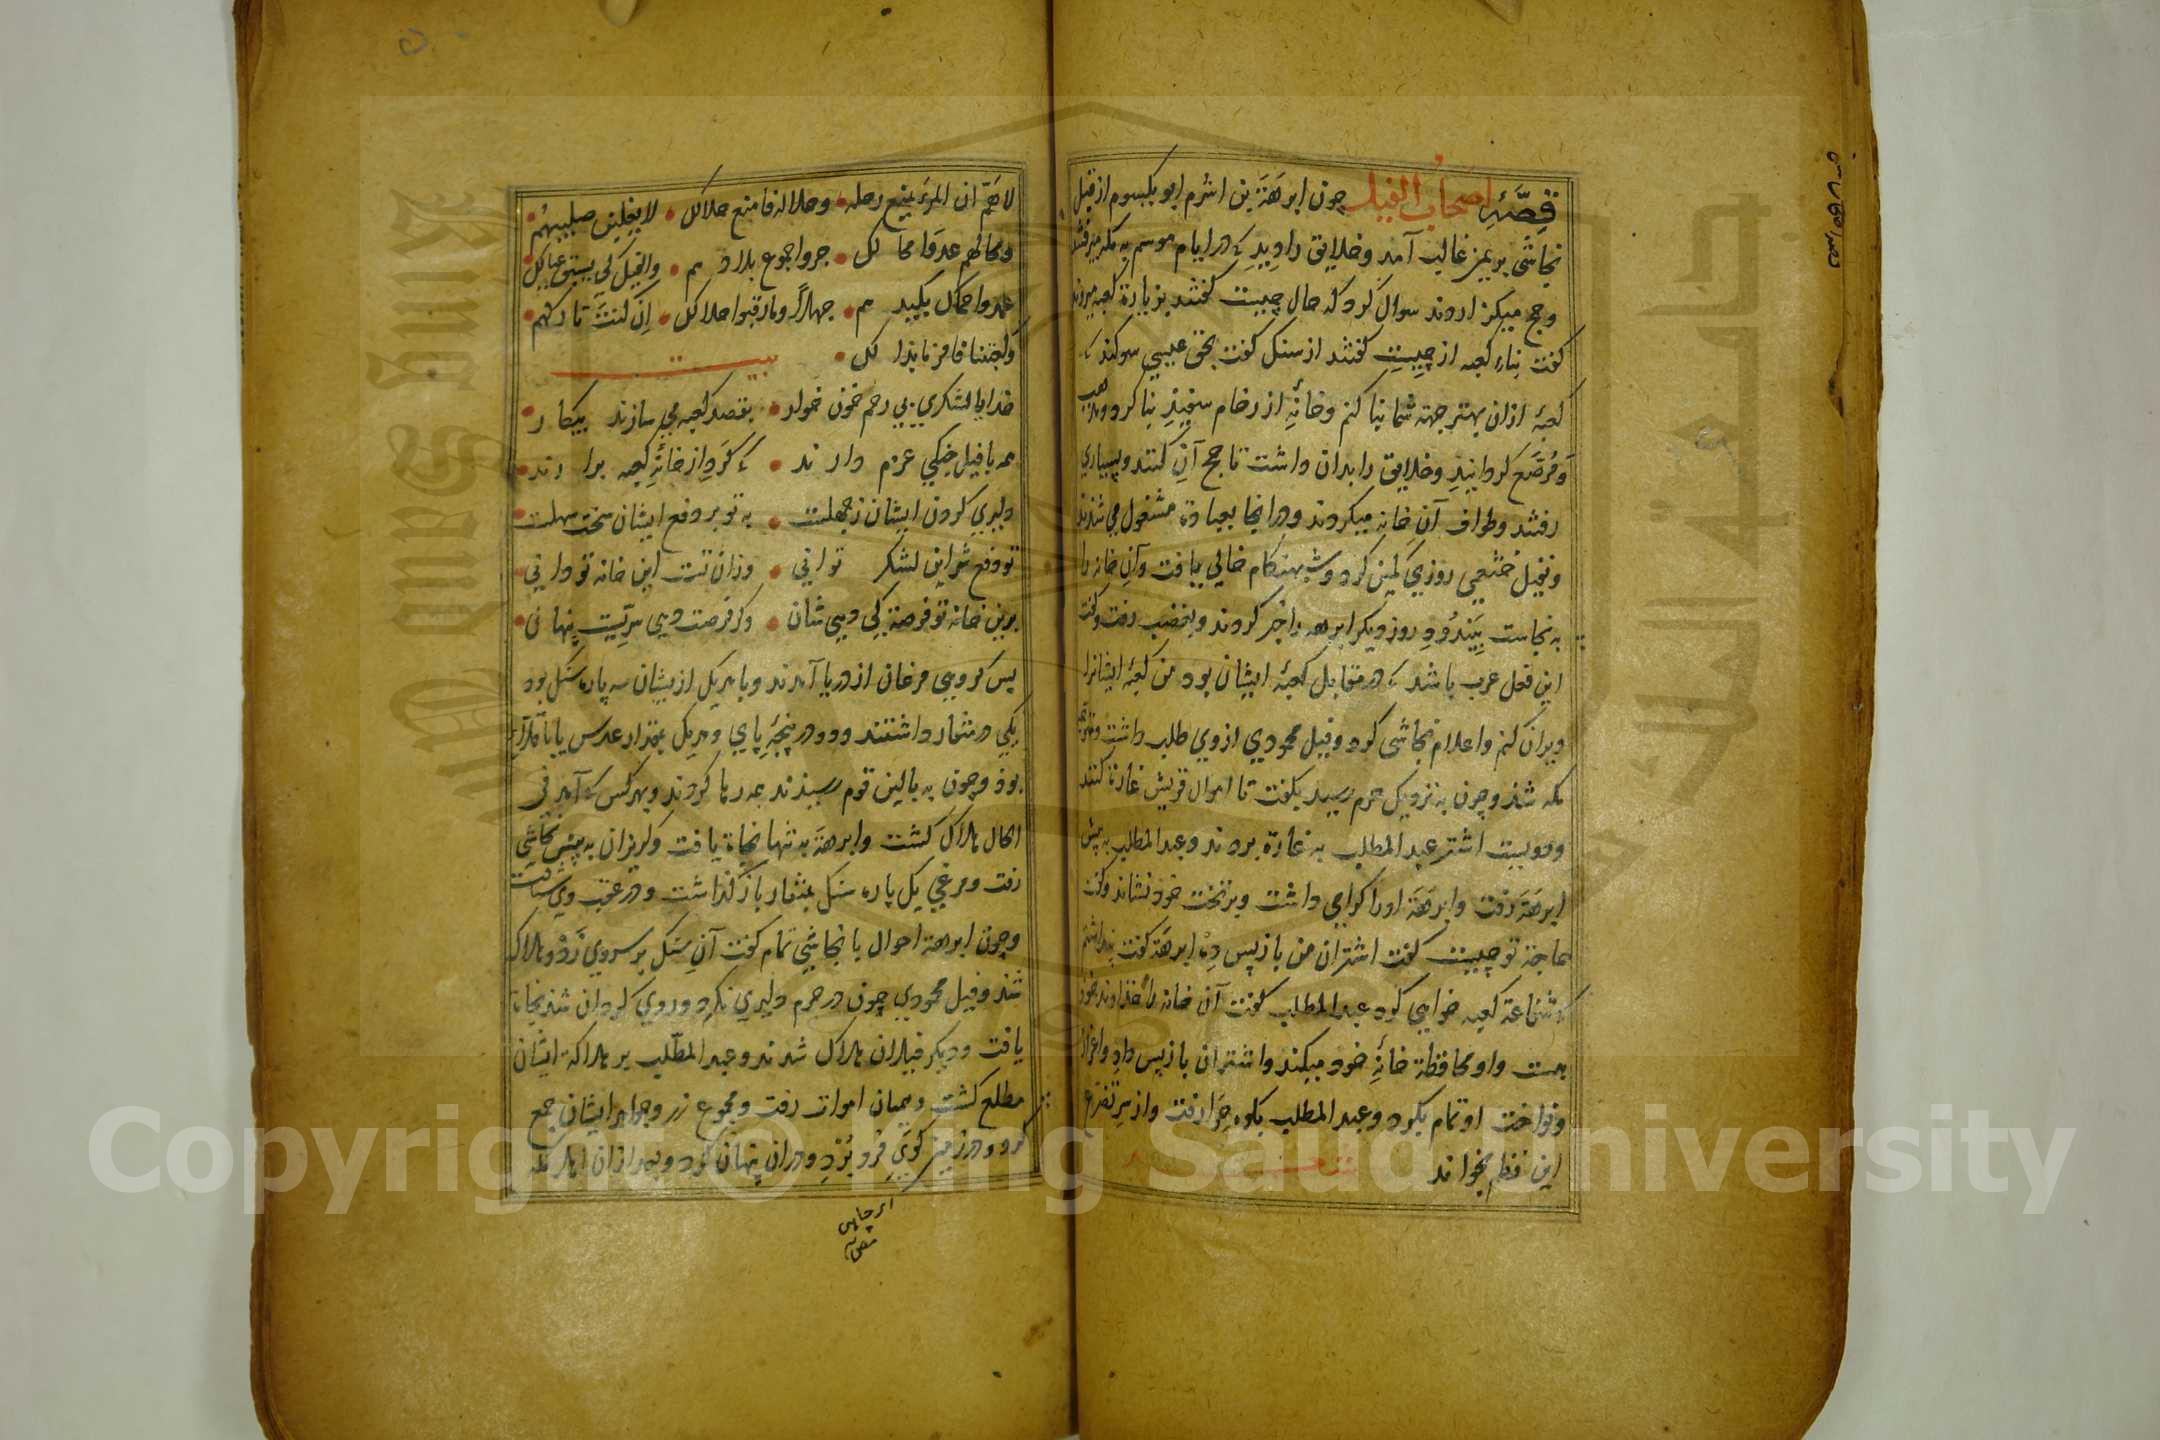 قصّهٔ اصحاب الفیل چون ابرهَة بن اشرم ابو یکسوم از قبل
نجاشی بر یمن غالب آمد و خلایق را دید که در ایام موسم به مکه میرفتند
و حج میکزاردند سوال کرد که حال چیست کفتند بزیارة کعبه میروند
کفت بناء کعبه از چیست کفتند از سنک کفت بحق عیسی سوکند که
کعبهٔ ازان بهتر جهة شما بنا کنم و خانهٔ از رخام سفید بنا کرد و مذهب
و مُرَصَّع کردانید و خلایق را بدان داشت تا حج آن کنند و بسیاری
رفتند و طواف آن خانه میکردند و در انجا بعبادة مشغول می شدند
و نفیل خثعمی روزی کمین کرد و شب هنکام خالی بیافت و آن خانه را
به نجاست بیندود روز دیکر ابرهه را خبر کردند و بغضب رفت و کفت
این فعل عرب باشد که در مقابل کعبهٔ ایشان بود من کعبهٔ ایشانرا
ویران کنم و اعلام نجاشی کرد و فیل محمودی از وی طلب داشت و متوجه
مکه شد و چون به نزدیک حرم رسید بکفت تا اموال قریش غارة کنند
و دویست اشتر عبد المطلب به غارة بردند و عبد المطلب به پیش
ابرهَة رفت و ابرهَة اورا کرامی داشت و بر تخت خود نشاند و کفت
حاجة تو چیست کفت اشتران من باز پس ده ابرهَة کفت پنداشتم
که شفاعة کعبه خواهی کرد عبد المطلب کفت آن خانه را خداوند خود
هست و او محافظة خانهٔ خود میکند و اشتران باز پس داد و اعزاز
و نواخت او تمام بکرد و عبد المطلب بکوه حرا رفت و از سر تضرع
این نظم بخواند شعر
لا همّ ان المرء یمنع رحله وحلاله فامنع حلالک لا یغلبن صلیبهم
ومحالهم عدوا محالک جروا جموع بلادهم والفیل کی یستبوا عیالک
عمدوا حماک بکیدهم جهلاً وما رقبوا حلالک إن کنت تارکهم
وکعبتنا فامر ما بدا لک بیت
خدایا لشکری بی رحم خون خوار بقصد کعبه می سازند بیکار
همه با فیل جنکی عزم دارند که کرد از خانهٔ کعبه برارند
دلیری کردن ایشان ز جهلست به تو بر دفع ایشان سخت سهلست
تو دفع شر این لشکر توانی وزان تست این خانه تو دانی
برین خانه تو فرصة کی دهی شان وکر فرصت دهی سرّیست پنهانی
پس کروهی مرغان از دریا آمدند و با هر یک از یشان سه پاره سنک بود
یکی در منقار داشتند و دو در پنجهٔ پای و هر یک بمقدار عدس یا باقلا
بود و چون به بالین قوم رسیدند همه رها کردند و بهر کس که آمد فی
الحال هلاک کشت و ابرهَة به تنها نجاة یافت و کریزان به پیش نجاشی
رفت و مرغی یک پاره سنک بمنقار باز کذاشت و در عقب وی بشتافت
و چون ابرهة احوال با نجاشی تمام کفت آن سنک بر سر وی زد و هلاک
شد و فیل محمودی چون در حرم دلیری نکرد و روی کردان شد نجاة
یافت و دیکر فیلان هلاک شدند و عبد المطّلب بر هلاکة ایشان
مطلع کشت و بمیان اموات رفت و مجموع زر و جواهر ایشان جمع
کرد و در زمین کوی فرو برد و دران پنهان کرد و بعد ازان اهل مکه